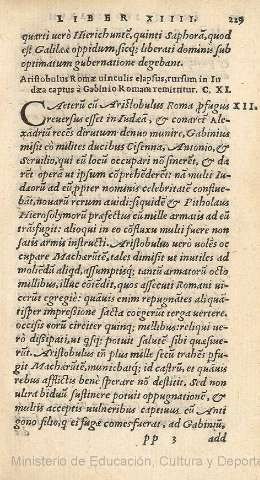 LIBER XIIII. 229
quarti uerò Hierichuntē, quinti Saphorā, quod
est Galilææ oppidum, sicq; liberati dominis sub
optimatum gubernatione degebant.
Aristobulus Romæ uinculis elapsus, rursum in Iu
dæa captus à Gabinio Romam remittitur. C. XI.
CAEterū cū Aristobulus Roma pfugus XII.
reuersus esset in Iudeā, & conaret Ale-
xādriū recēs dirutum denuo munire, Gabinius
misit eò milites ducibus Sisenna, Antonio, &
Seruilio, qui eū locū occupari nō sineret, & da
rēt opera ut ipsum cōprehēderēt: nā multi Iudæ
Iudæorū ad eū ppter nominis celebritatē confiue
bāt, nouarū rerum auidi: siquidē & Pitholaus
Hierosolymorū præfectus cū mille armais ad eū
trāsfugit: alioqui in eo cōfluxu multi fuere non
satis armis instructi. Aristobulus uerò uolēs oc
cupare Machærūtē, tales dimisit ut inutiles ad
moliēdū aliqd, assumptisq; tantū armatorū octo
millibus, illuc cōtēdit, quos assecuti Romani ui-
cerūt egregiè: quāuis enim repugnātes aliquā-
tisper impressione facta coegerūt terga uertere,
occisis eorū circiter quinq; millibus: reliqui ue-
rò dissipati, ut qsq; potuit salutē sibi quæsiue-
rūt. Aristobulus tn̄ plus mille secū trahēs pfu-
git Machærūtē, muniebatq; id castrū, et quāuis
rebus afflictis benè sperare nō destitit. Sed non
ultra biduū sustinere potuit oppugnationē, &
multis acceptis uulneribus captus cū Anti
gono filio, q ei fugæ comes fuerat, ad Gabiniū,
pp 3 add
Ministerio de Educación, Cultura y Deporte